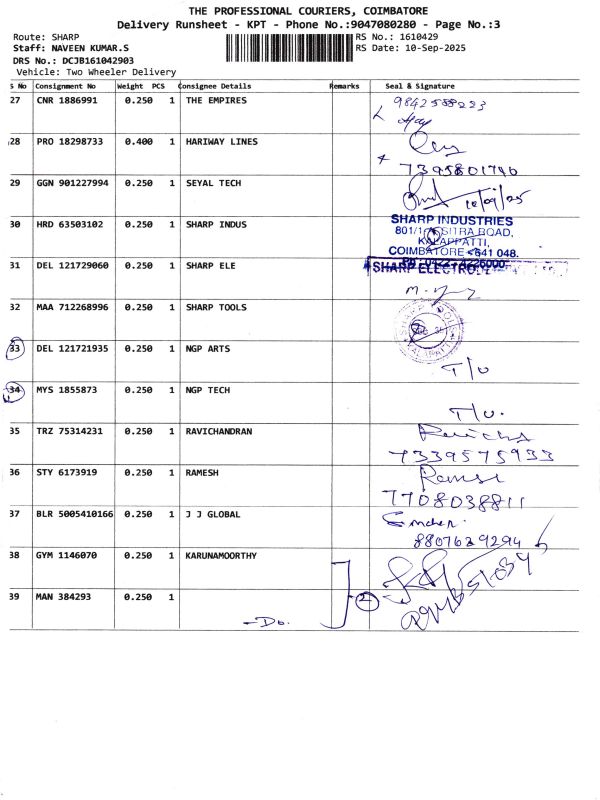 THE PROFESSIONAL COURIERS, COIMBATORE
Delivery Runsheet - KPT - Phone No.:9047080280 - Page No.:3
Route: SHARP
RS No.: 1610429
Staff: NAVEEN KUMAR.S
RS Date: 10-Sep-2025
DRS No.: DCJB161042903
Vehicle: Two Wheeler Delivery
S No Consignment No Weight PCS Consignee Details Remarks Seal & Signature
27 CNR 1886991 0.250 1 THE EMPIRES
28 PRO 18298733 0.400 1 HARIWAY LINES
7395801746
29 GGN 901227994 0.250 1 SEYAL TECH
10/09/25
30 HRD 63503102 0.250 1 SHARP INDUS
SHARP INDUSTRIES
KALAPPATTI,
COIMBATORE - 641 048.
31 DEL 121729060 0.250 1 SHARP ELE
32 MAA 712268996 0.250 1 SHARP TOOLS
33 DEL 121721935 0.250 1 NGP ARTS
T/U
34 MYS 1855873 0.250 1 NGP TECH
T/U.
35 TRZ 75314231 0.250 1 RAVICHANDRAN
7339575933
36 STY 6173919 0.250 1 RAMESH
7708038811
37 BLR 5005410166 0.250 1 J J GLOBAL
8807639294
38 GYM 1146070 0.250 1 KARUNAMOORTHY
39 MAN 384293 0.250 1 -Do. 2